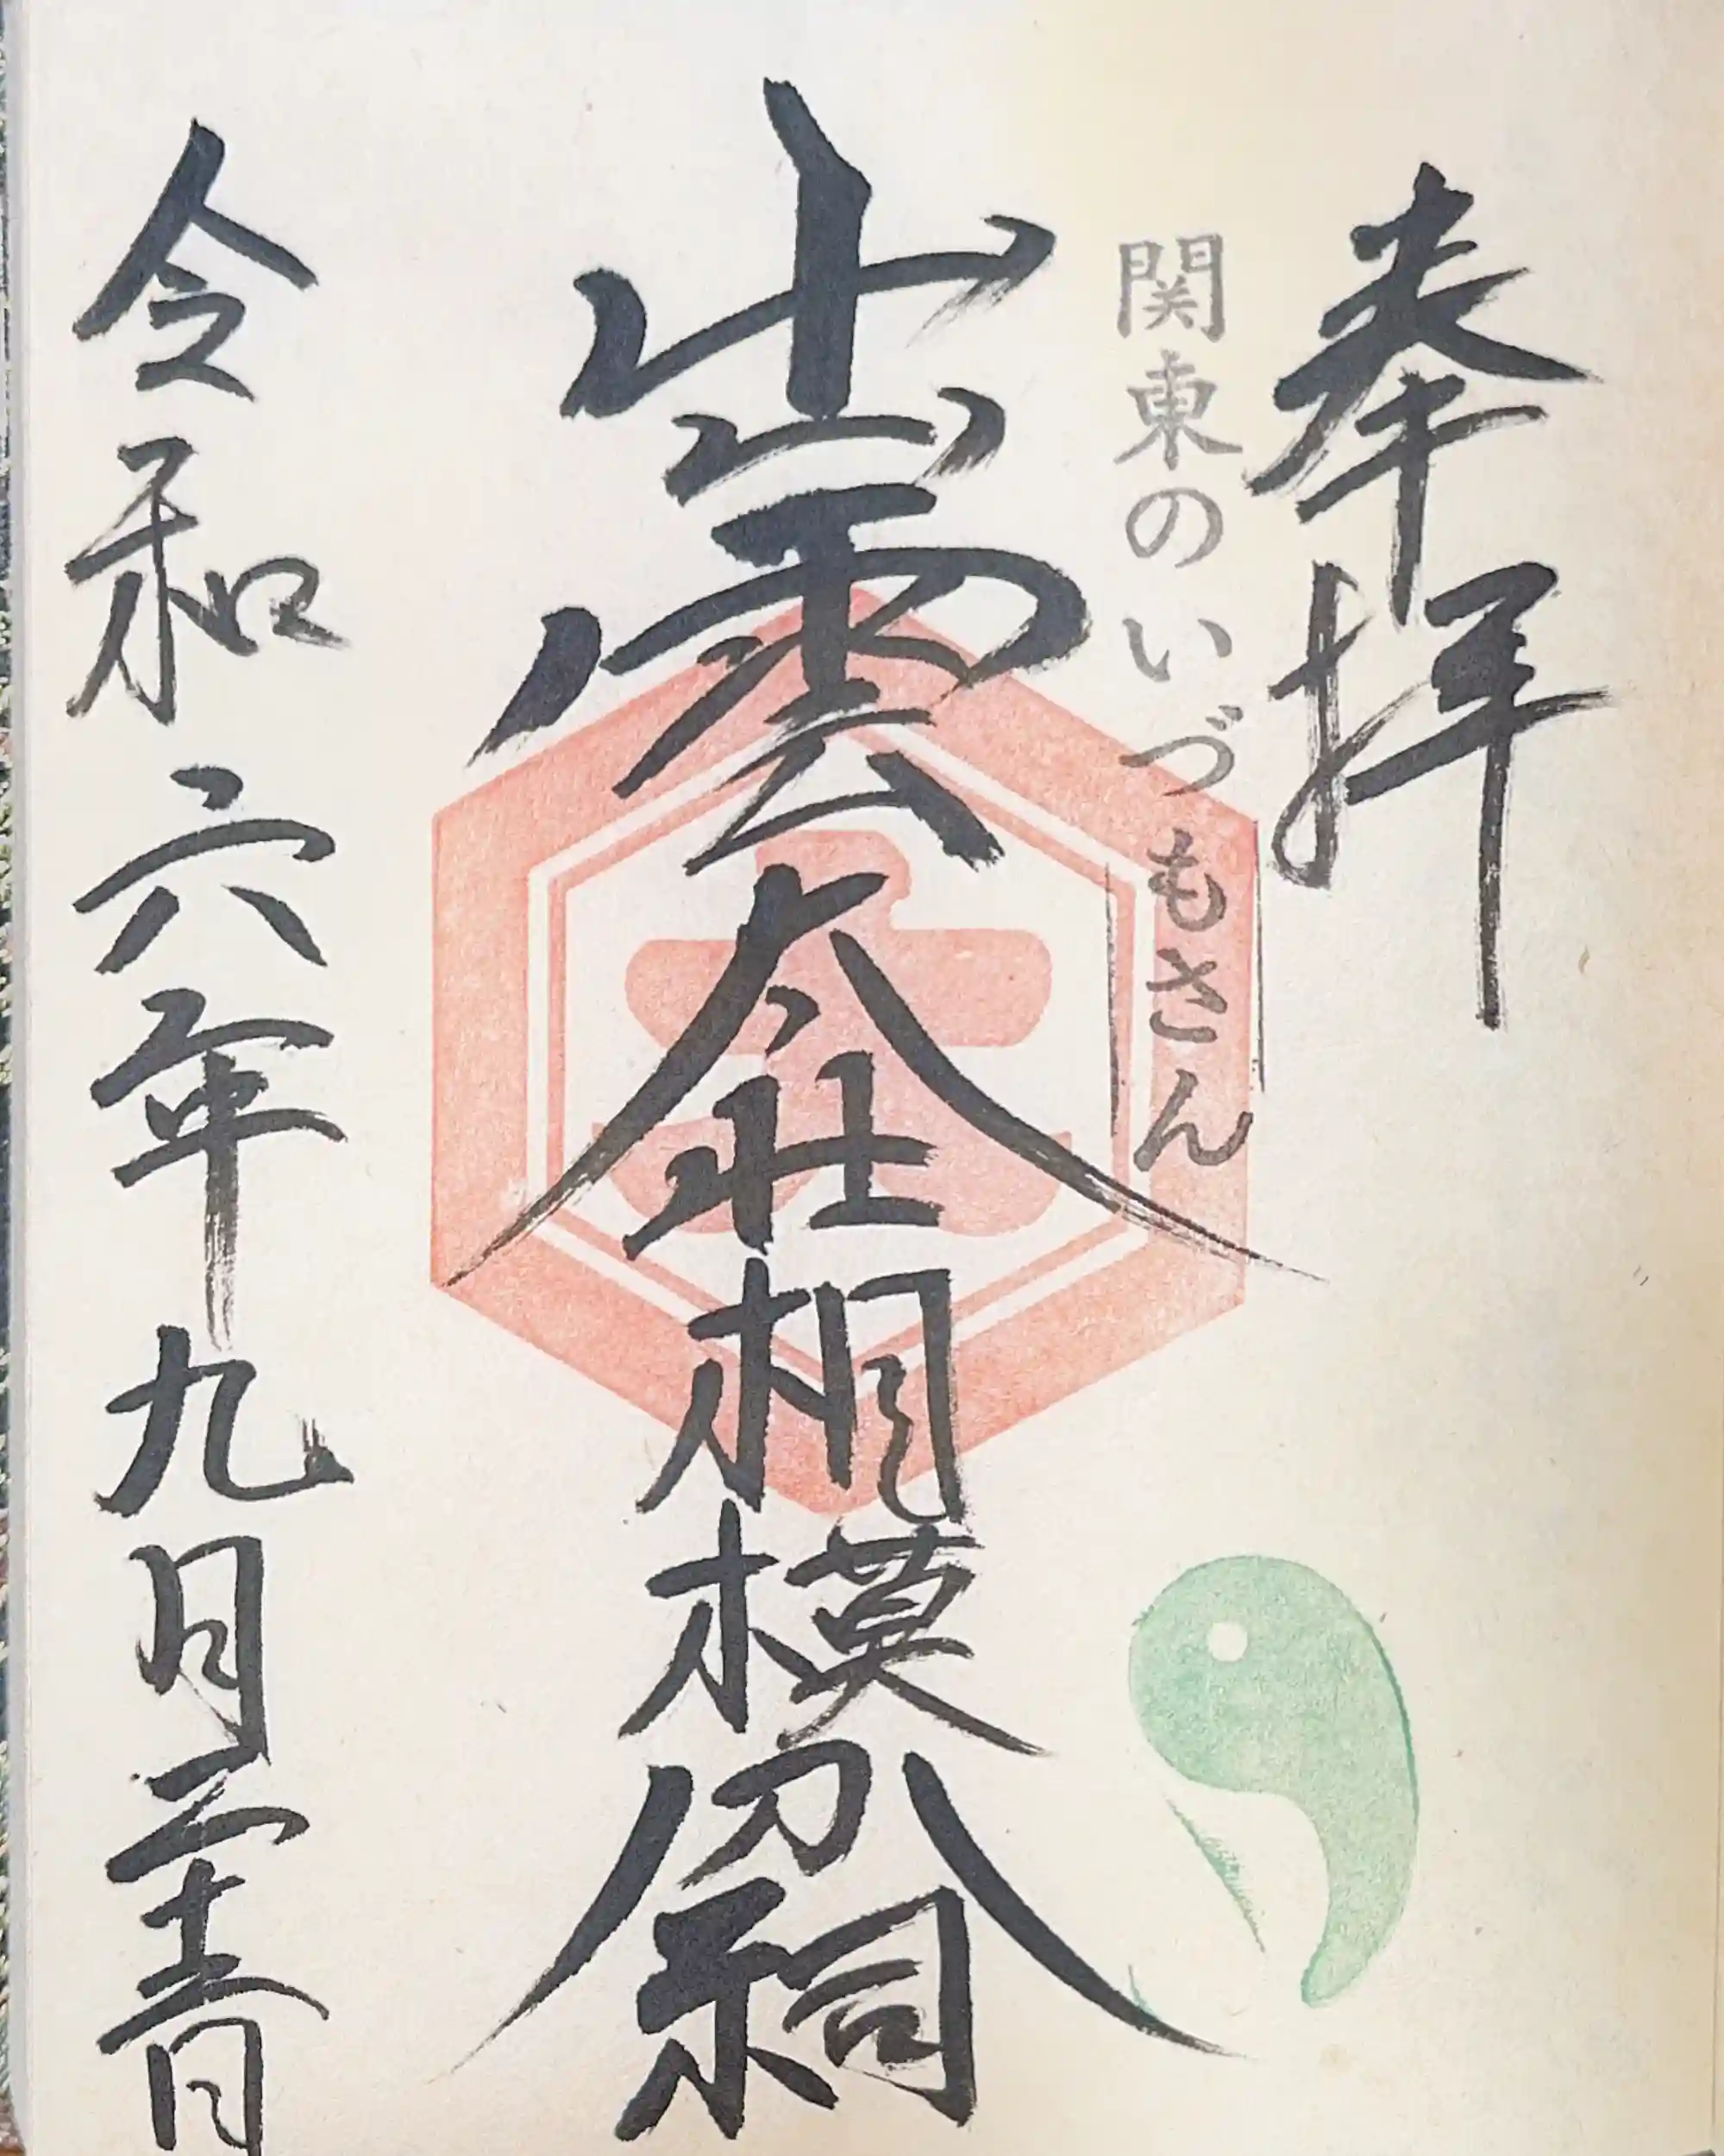 奉拝
関東のいづもさん
出雲大社相模分祠
令和六年九月二十日